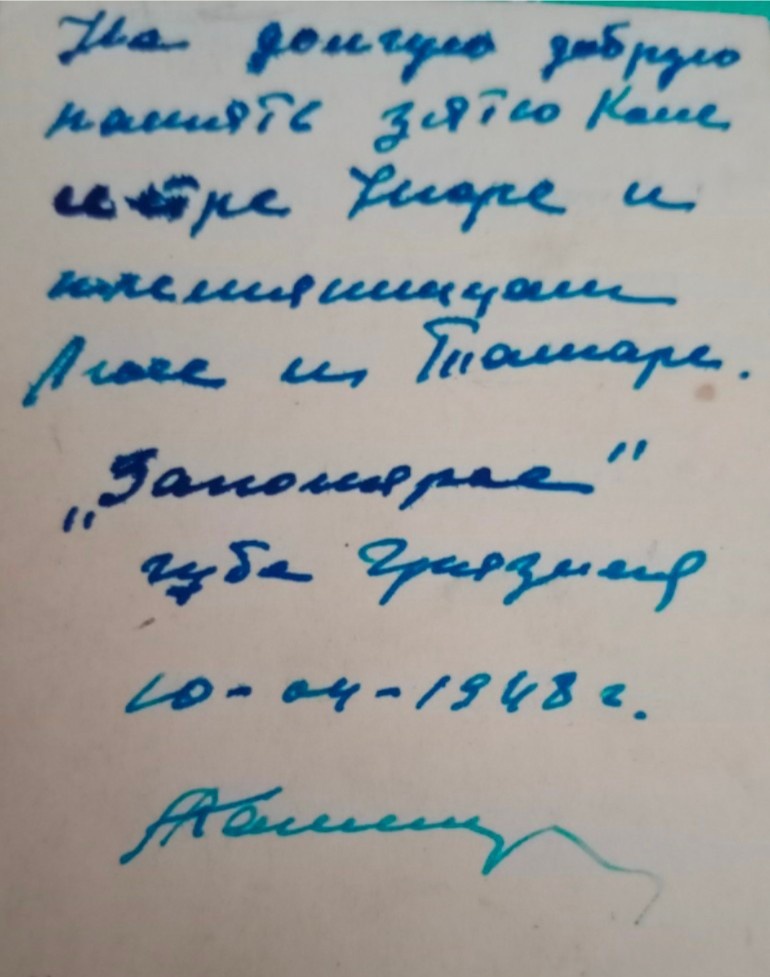 На долгую добрую
память зятю Коле
сестре Шуре и
племянницам
Люсе и Тамаре.
„Заполярье"
губа Грязная
10-04-1948 г.